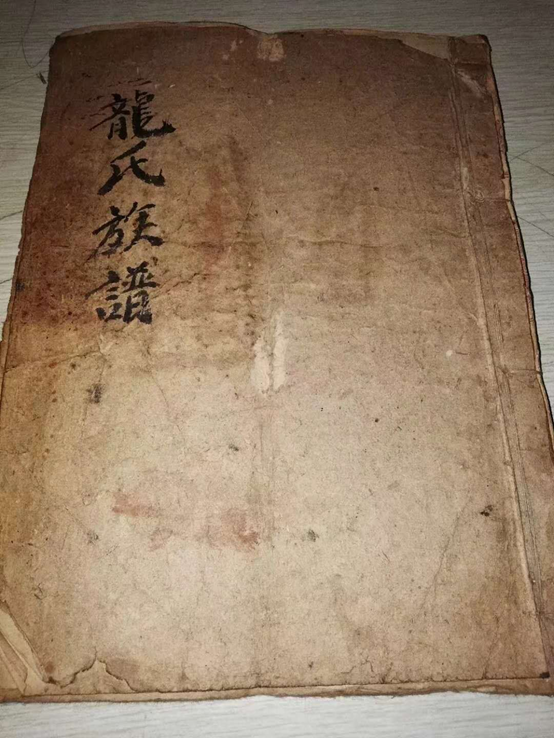 龍氏族譜